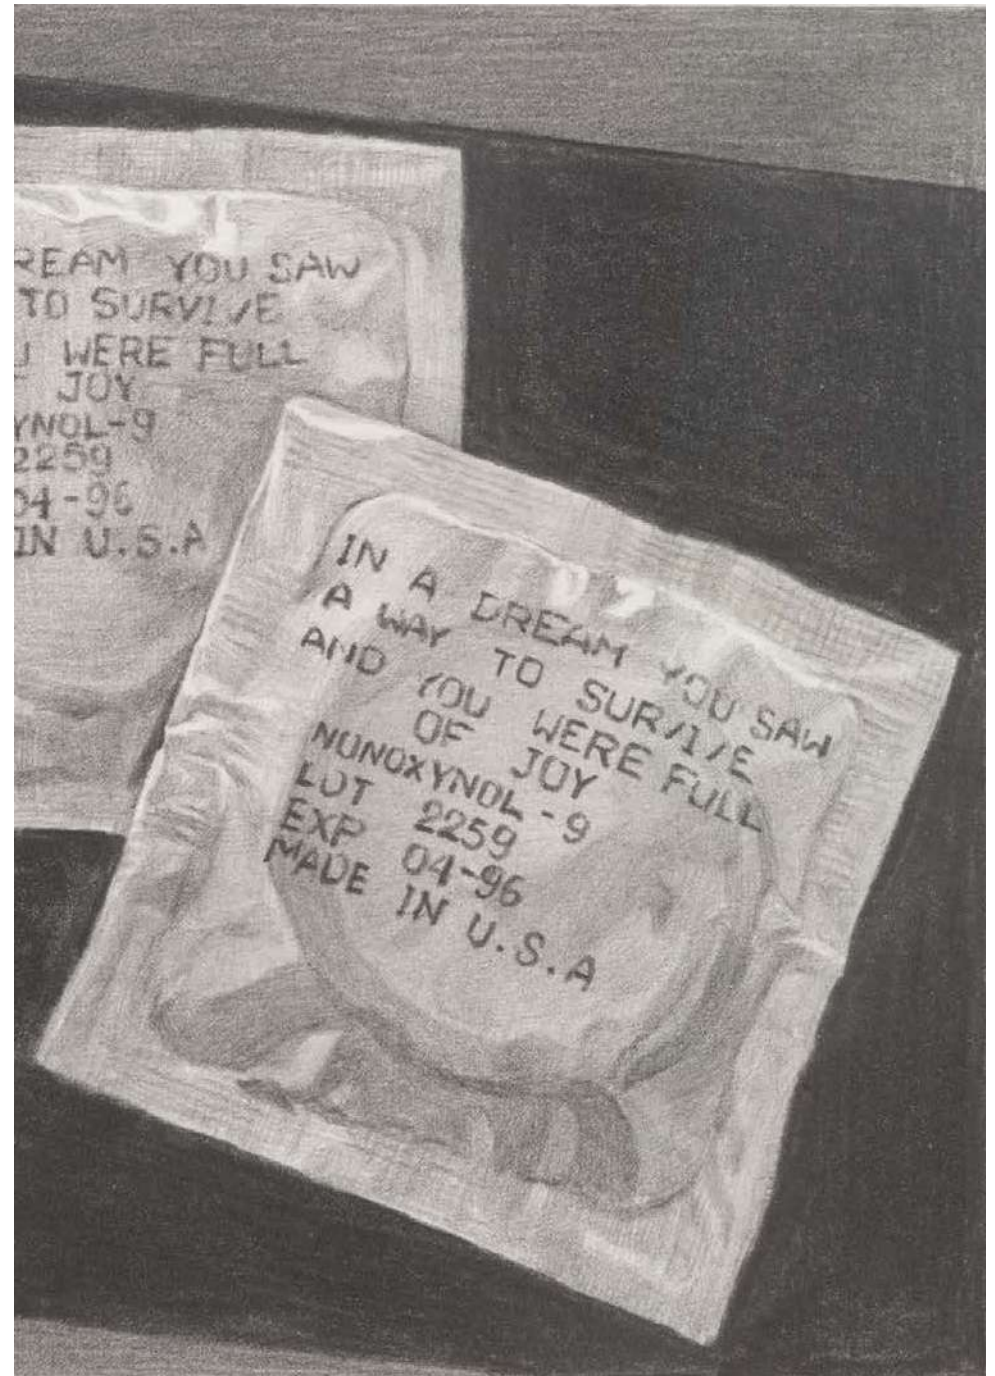 REAM YOU SAW
TO SURVIVE
U WERE FULL
JOY
YNOL-9
2259
04-96
IN U.S.A
IN A DREAM YOU SAW
A WAY TO SURVIVE
AND YOU WERE FULL
OF JOY
NONOXYNOL-9
LOT 2259
EXP 04-96
MADE IN U.S.A